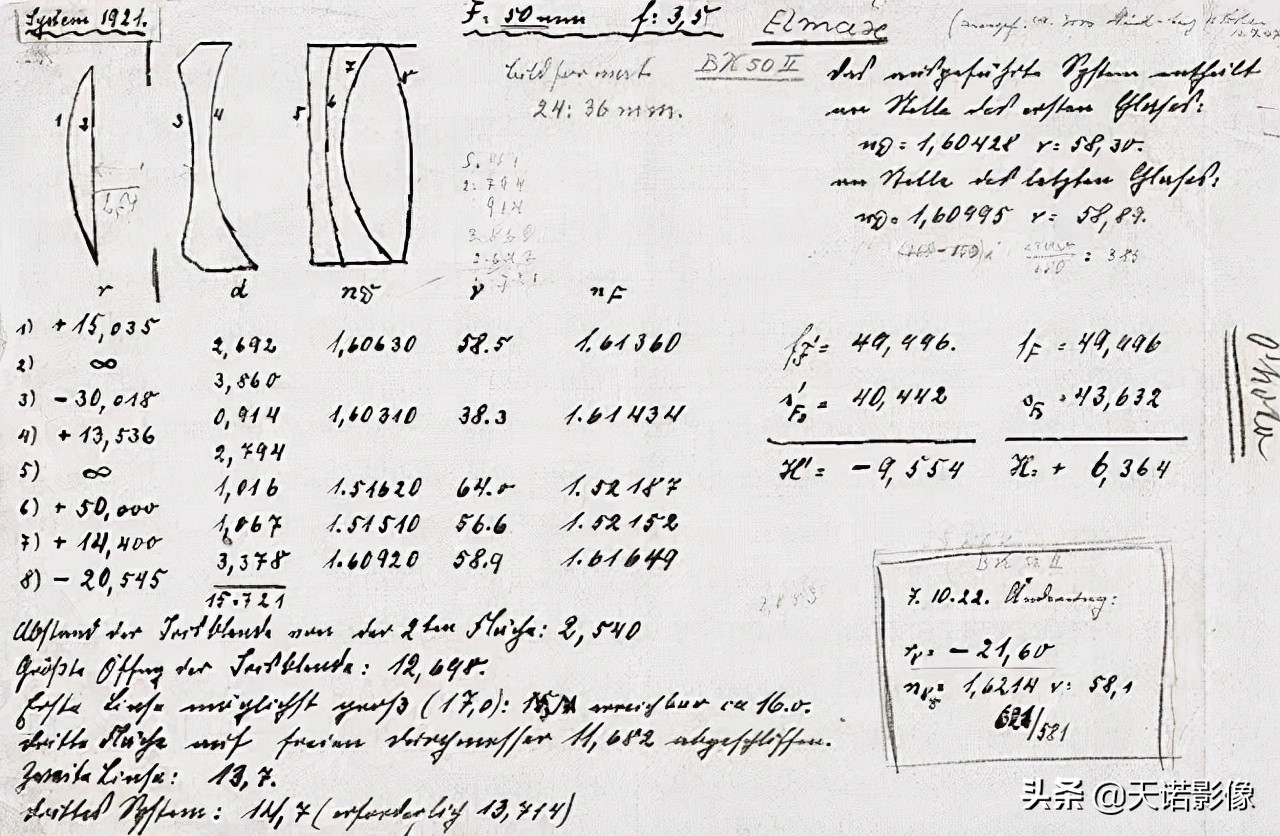 System 1921.
F = 50 mm f: 3,5
Elmax
Bildformat
24:36 mm.
BK 50 II
Das ausgeführte System enthält
an Stelle des ersten Glases:
nD = 1,60428 ν = 58,30.
an Stelle des letzten Glases:
nD = 1,60995 ν = 58,89.
: 385
1 2 3 4 5 6 7 8
r d nD ν nF
1) + 15,035
2,692 1,60630 58.5 1.61360
2) ∞
3,860
3) - 30,018
0,914 1,60310 38.3 1.61434
4) + 13,536
2,794
5) ∞
1,016 1.51620 64.0 1.52187
6) + 50,000
1,067 1.51510 56.6 1.52152
7) + 14,400
3,378 1.60920 58.9 1.61649
8) - 20,545
15.721
f'F = 49,496. fF = 49,496
s'F = 40,442 sF = 43,632
H' = - 9,554 H = + 6,364
Abstand der Irisblende von der 2ten Fläche: 2,540
Größte Öffng der Irisblende: 12,698.
Erste Linse möglichst groß (17,0): erreichbar ca 16.0.
Dritte Fläche auf freien Durchmesser 11,682 abgeschliffen.
Zweite Linse: 13,7.
Drittes System: 14,7 (erforderlich 13,714)
BK 50 II
7.10.22. Änderung:
r8 = - 21,60
n8 = 1,6214 ν: 58,1
621/581
头条 @天诺影像